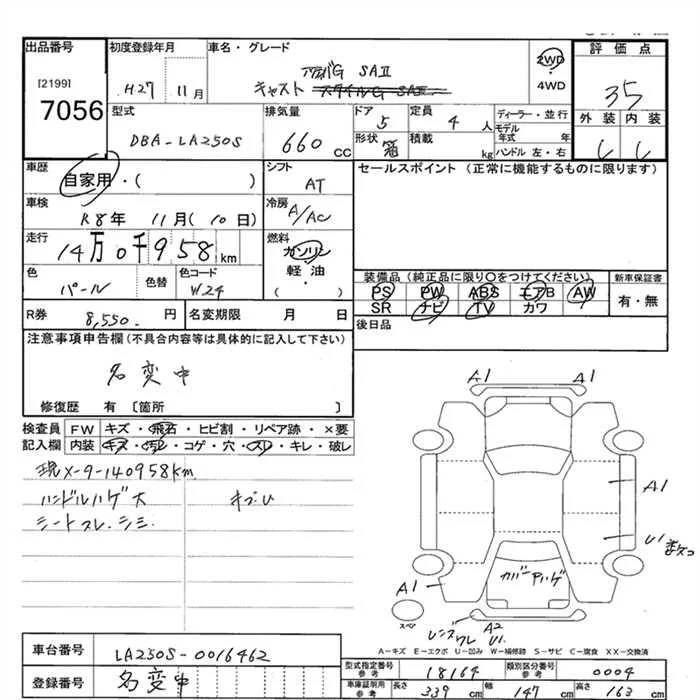 出品番号
[2199]
7056
初度登録年月
H27 11月
車名・グレード
アクティバG SAⅡ
キャスト スタイルG SAⅡ
2WD
4WD
評価点
35
外装 内装
型式
DBA-LA250S
排気量
660 CC
ドア
5
定員
4 人
形状
箱
積載
kg
ディーラー・並行
モデル年式 年
ハンドル 左・右
車歴
自家用・( )
シフト
AT
セールスポイント (正常に機能するものに限ります)
車検
R8年 11月(10日)
冷房
A/AC
走行
14万0千958km
燃料
ガソリン
軽油
( )
色
パール
色替
色コード
W24
装備品(純正品に限り○をつけてください)
PS PW ABS エアB AW
SR ナビ TV カワ
新車保証書
有・無
R券 8,550. 円
名変期限 月 日
後日品
注意事項申告欄(不具合内容等は具体的に記入して下さい)
名変中
修復歴 有 〔箇所 〕
検査員記入欄
FW キズ・飛石・ヒビ割・リペア跡・×要
内装 キズ・汚レ・コゲ・穴・スレ・キレ・破レ
現メーター140958km
ハンドルハゲ大 キズU
シートスレ.シミ
A1 A1
A1
U1
カバーアハゲ
A1
スペア
レンズワレ A2
U1
A-キズ E-エクボ U-凹み W-補修跡 S-サビ C-腐食 XX-交換済
車台番号 LA250S-0016462
登録番号 名変中
型式指定番号 参考 18164
類別区分番号 参考 0004
車庫証明用 参考 長さ 339 cm 幅 147 cm 高さ 163 cm